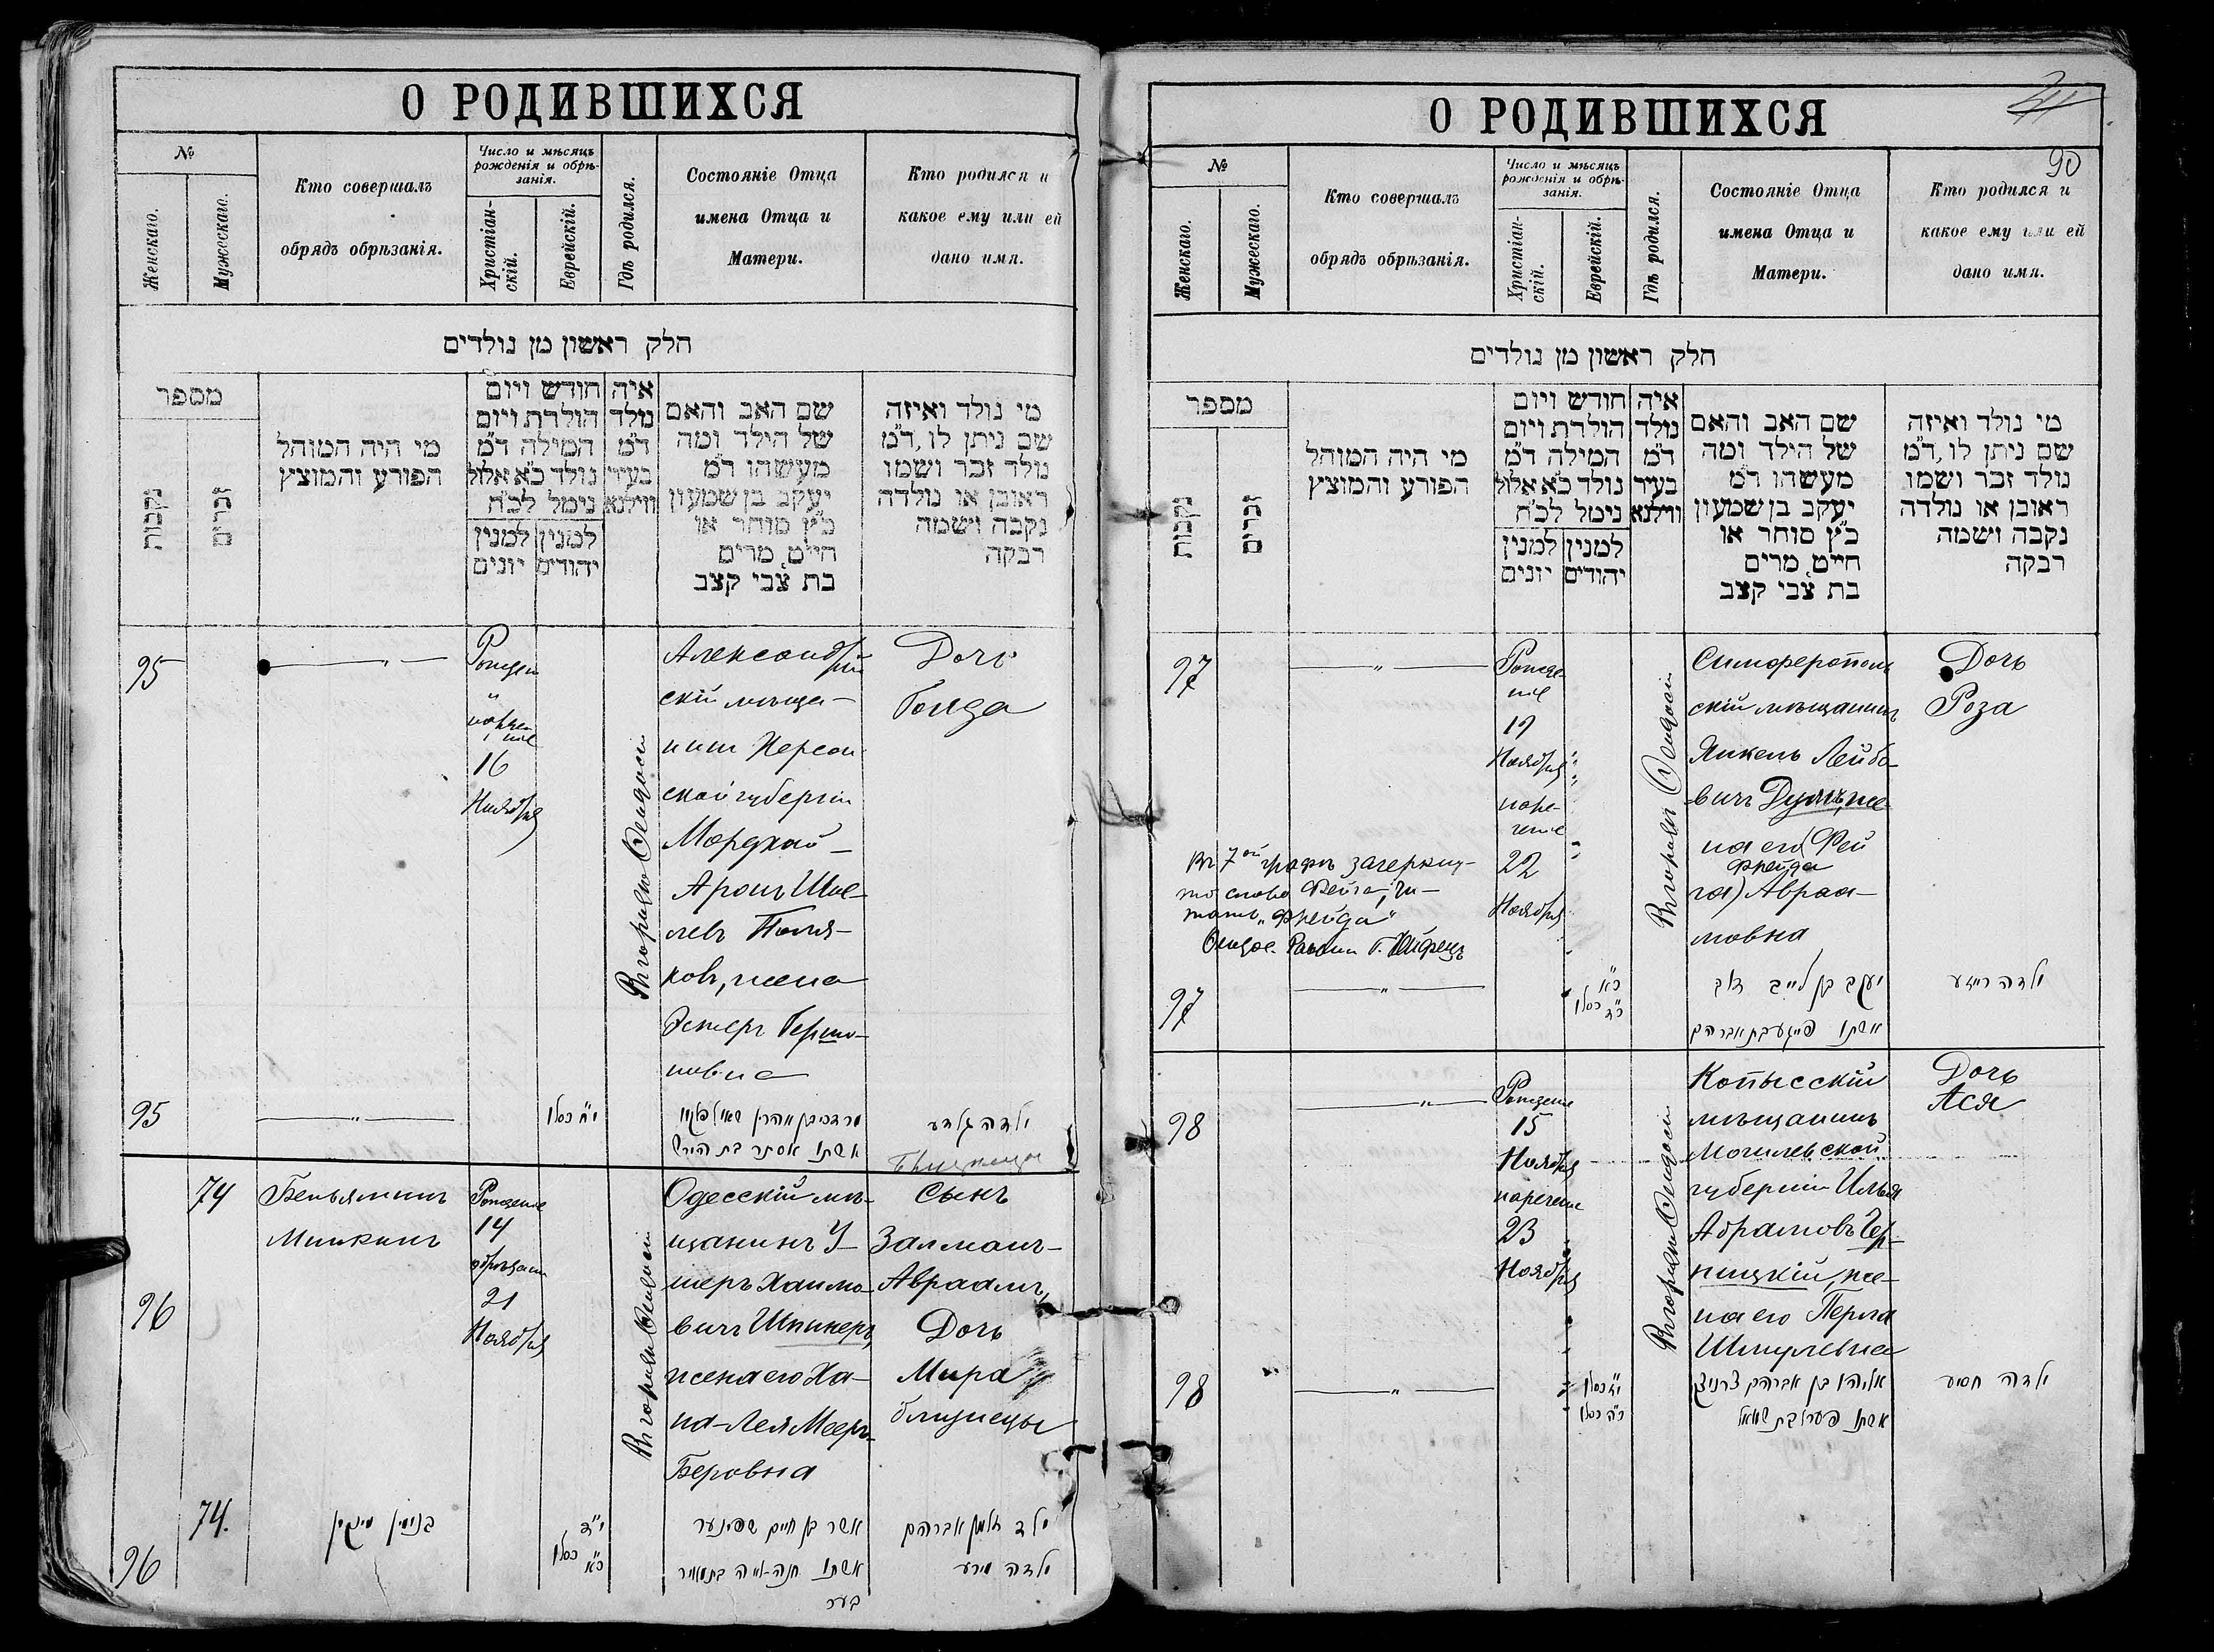 О РОДИВШИХСЯ
№
Женскаго.
Мужескаго.
Кто совершалъ
обрядъ обрѣзанія.
Число и мѣсяцъ
рожденія и обрѣ-
занія.
Христіан-
скій.
Еврейскій.
Гдѣ родился.
Состояніе Отца
имена Отца и
Матери.
Кто родился и
какое ему или ей
дано имя.
חלק ראשון מן נולדים
מספר
נקבות
זכרים
מי היה המוהל
הפורע והמוצץ
חודש ויום
הולדת ויום
המילה ד״מ
נולד כ״א אלול
נימל לכ״ח
למנין
יהודים
למנין
יונים
איה
נולד
ד״מ
בעיר
ווילנא
שם האב והאם
של הילד ומה
מעשהו ד״מ
יעקב בן שמעון
כ״ץ סוחר או
חייט, מרים
בת צבי קצב
מי נולד ואיזה
שם ניתן לו, ד״מ
נולד זכר ושמו
ראובן או נולדה
נקבה ושמה
רבקה
95
16
Ноября
Александрій
скій мѣща-
нинъ Херсон
ской губерніи
Мордхай-
Аронъ Шое-
левъ Поля-
ковъ, жена
Эстеръ Гершо-
новна
Дочь
Голда
95
י״ח כסלו
אשתו אסתר בת הירש
ילדה גולדע
74
96
Беньяминъ
Минкинъ
Рожденіе
14
21
Ноября
Одесскій мѣ-
щанинъ У-
шеръ Хаимо-
вичъ Шпинеръ,
жена его Ха-
на-Лея Мееръ-
Беровна
Сынъ
Залманъ-
Авраамъ,
Дочь
Мира
близнецы
74.
96
בנימין מינקין
י״ד
כ״א כסלו
אשר בן חיים שפינער
אשתו חנה-לייה בת מאיר
בער
ילד זלמן אברהם
ילדה מירע
О РОДИВШИХСЯ
90
№
Женскаго.
Мужескаго.
Кто совершалъ
обрядъ обрѣзанія.
Число и мѣсяцъ
рожденія и обрѣ-
занія.
Христіан-
скій.
Еврейскій.
Гдѣ родился.
Состояніе Отца
имена Отца и
Матери.
Кто родился и
какое ему или ей
дано имя.
חלק ראשון מן נולדים
מספר
נקבות
זכרים
מי היה המוהל
הפורע והמוצץ
חודש ויום
הולדת ויום
המילה ד״מ
נולד כ״א אלול
נימל לכ״ח
למנין
יהודים
למנין
יונים
איה
נולד
ד״מ
בעיר
ווילנא
שם האב והאם
של הילד ומה
מעשהו ד״מ
יעקב בן שמעון
כ״ץ סוחר או
חייט, מרים
בת צבי קצב
מי נולד ואיזה
שם ניתן לו, ד״מ
נולד זכר ושמו
ראובן או נולדה
נקבה ושמה
רבקה
97
Рожде-
ніе
19
Ноября
наре-
ченіе
22
Ноября
Симферополь
скій мѣщанинъ
Янкель Лейбо-
вичъ жe
на его (Фей
Фрейда
га) Авраа-
мовна
Дочь
Роза
Въ 7ой графѣ зачеркну-
то слово Фейга, чи-
тать „Фрейда"
97
כ״א
כ״ד כסלו
אשתו פייגע בת אברהם
ילדה רייזע
98
Рожденіе
15
Ноября
нареченіе
23
Ноября
Копысскій
мѣщанинъ
Могилевской
губерніи Илья
Абрамовъ Чер-
ницкій, же-
на его Перла
Шмулевна
Дочь
Ася
98
כ״ה כסלו
אליהו בן אברהם
אשתו פערל בת שמואל
ילדה אסיע